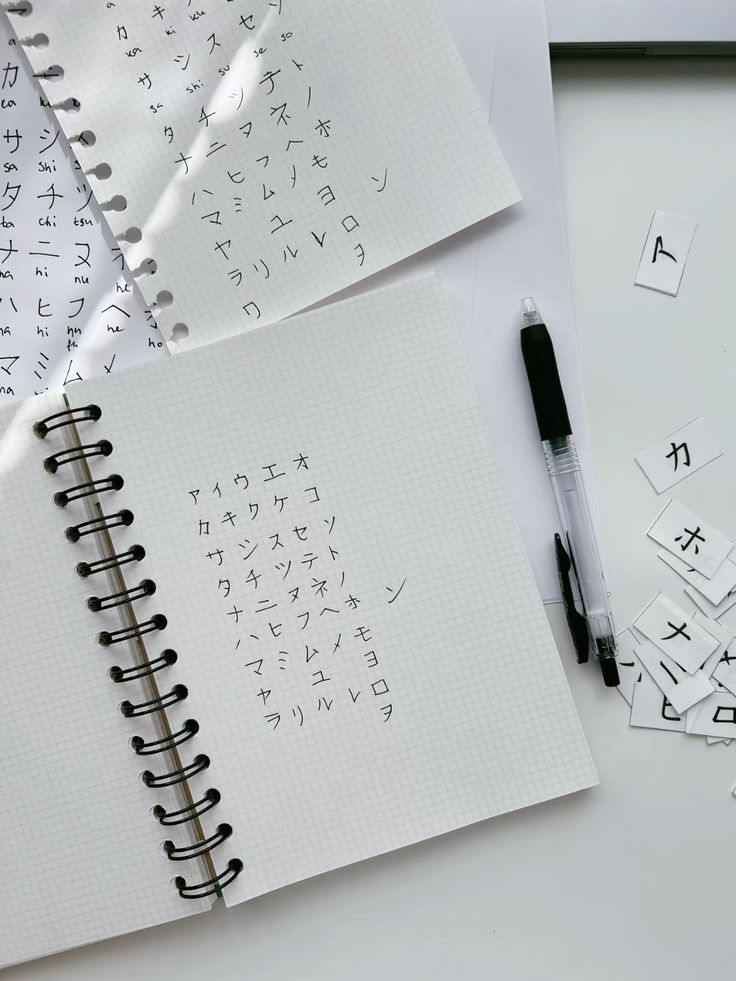 カ キ ク
ka ki ku
サ シ ス セ ソ
sa shi su se so
タ チ ツ テ ト
ナ ニ ヌ ネ ノ
ハ ヒ フ ヘ ホ
マ ミ ム メ モ
ヤ ユ ヨ ン
ラ リ ル レ ロ
ワ ヲ
カ
サ シ
sa shi
タ チ ツ
ta chi tsu
ニ ヌ
hi nu ne
ヒ フ ヘ ホ
hi he ho
マ ミ ム メ
ア イ ウ エ オ
カ キ ク ケ コ
サ シ ス セ ソ
タ チ ツ テ ト
ナ ニ ヌ ネ ノ
ハ ヒ フ ヘ ホ ン
マ ミ ム メ モ
ヤ ユ ヨ
ラ リ ル レ ロ
ヲ
ア
カ
ホ
メ
ヒ
ロ